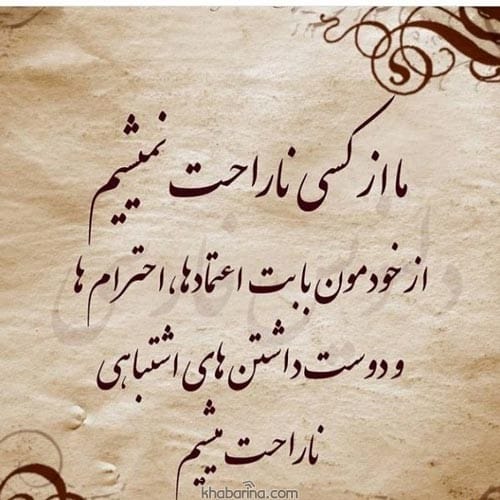 ما از کسی ناراحت نمیشیم
از خودمون بابت اعتمادها، احترام ها
و دوست داشتن های اشتباهی
ناراحت میشیم
khabarina.com